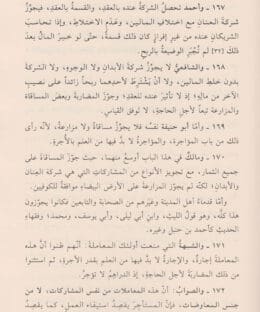 ١٦٧ ـ وأحمد تحصلُ الشركة عنده بالعقدِ، والقسمةُ بالعقدِ، فيجوِّزُ
شركةَ العنان مع اختلاف الماليين، وعدمِ الاختلاطِ، وإذا تحاسبَ
الشريكان عنده من غيرِ إفرازٍ كان ذلك قسمةً، حتى لو خسِرَ المالُ بعدَ
ذلك [٣٦] لم تُجبَرِ الوضيعةُ بالربحِ.
١٦٨ ـ والشافعيُّ لا يجوِّزُ شركةَ الأبدانِ ولا الوجوهِ، ولا الشركةَ
بدونِ خلطِ المالين، ولا أنْ يَشْتَرِطَ لأحدِهما ربحاً زائداً على نصيبِ
الآخر من مالِهِ؛ إذ لا تأثيرَ عنده للعقدِ، وجوَّزَ المضاربةَ وبعضَ المساقاةِ
والمزارعةِ تبعاً لأجلِ الحاجةِ، لا لوفقِ القياسِ.
١٦٩ ـ وأمَّا أبو حنيفة نفسُه فلا يجوِّزُ مساقاةً ولا مزارعةً، لأنه رأى
ذلك من بابِ المؤاجرةِ، والمؤاجرةُ لا بدَّ فيها من العلمِ بالأجرةِ.
١٧٠ ـ ومالكٌ في هذا البابِ أوسعُ منهما، حيث جوَّزَ المساقاةَ على
جميعِ الثمارِ، مع تجويزِ الأنواعِ من المشاركاتِ التي هي شركةُ العنانِ
والأبدانِ، لكنَّه لم يجوِّز المزارعةَ على الأرضِ البيضاءِ موافقةً للكوفيين.
وأمَّا قدماءُ أهلِ المدينةِ وغيرُهم من الصحابةِ والتابعين فكانوا يجوِّزون
هذا كلَّه، وهو قولُ الليثِ، وابنِ أبي ليلى، وأبي يوسف، ومحمد، وفقهاءِ
الحديثِ كأحمد بن حنبل وغيره.
١٧١ ـ والشبهةُ التي منعت أولئك المعاملةَ: أنَّهم ظنوا أنَّ هذه
المعاملةَ إجارةٌ، والإجارةُ لا بدَّ فيها من العلمِ بقدرِ الأجرةِ، ثم استثنوا
من ذلك المضاربةَ لأجلِ الحاجةِ، إذ الدراهمُ لا تُؤجَرُ.
١٧٢ ـ والصوابُ: أنَّ هذه المعاملاتِ من نفسِ المشاركاتِ، لا من
جنسِ المعاوضاتِ، فإنَّ المستأجرَ يقصدُ استيفاءَ العملِ، كما يقصِدُ